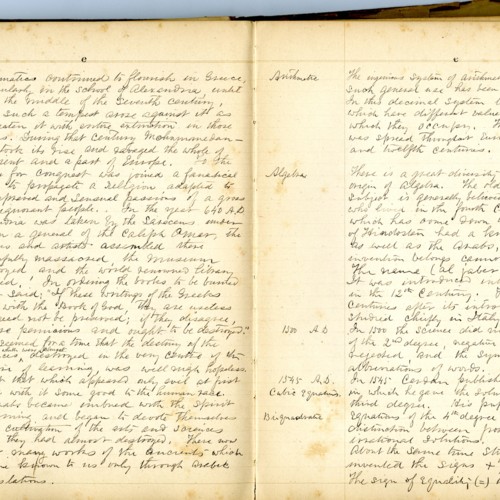 c
matics continued to flourish in Greece,
ularly in the school of Alexandria, until
the middle of the Seventh century,
such a tempest arose against it as
eaten it with entire extinction in those
During that century Mohammedan-
took its rise and savaged the whole of
ent and a part of Europe. To the
for conquest was joined a fanatical
to propagate a Religion adapted to
and sensual passions of a gross
ignorant people. In the year 640 A.D
was taken by the
a general of the Caliph Omar, the
and artists assembled there
fully massacred, the Museum
oyed and the world renowned library
In ordering the books to be burned
said; "If these writings of the Greeks
with the Book of God, they are useless
need not be preserved; if they disagree,
are pernicious and ought to be destroyed."
seemed for a time that the destiny of the
which were almost
destroyed in the very centre of the
of learning, was well nigh hopeless
that which appeared only ever at first
with it some good to the human race.
became imbued with the spirit
rning, and began to devote themselves
cultivation of the arts and sciences
they had almost destroyed. There now
many works of the Ancients which
known to us only through Arabic
slations.
c
Arithmetic
The ingenious system of arithme
such general use has been
In this decimal system
which have different value
which they occupy. Th
was spread throughout Euro
and twelfth centuries.
Algebra
There is a great diversity
origin of Algebra. The old
subject is generally believed
who lived in the fourth C
which has come down
of Hindostan had a
as well as the Arabs,
invention belongs cannot
The name (al jaber
It was introduced int
in the 12th Century.
Centuries after its intro
studied chiefly in Italy
1500 A.D
In 1500 the science did
of the 2nd degree, negative
rejected, and the sign
abbreviations of words.
1545 A.D.
In 1545 Cardan publish
Cubic Equations
in which he gave the solu
third degree. His pu
Biquadratic
Equations of the 4th degree
distinction between pos
irrational solutions.
About the same time Sti
invented the signs +
The sign of equality (=)